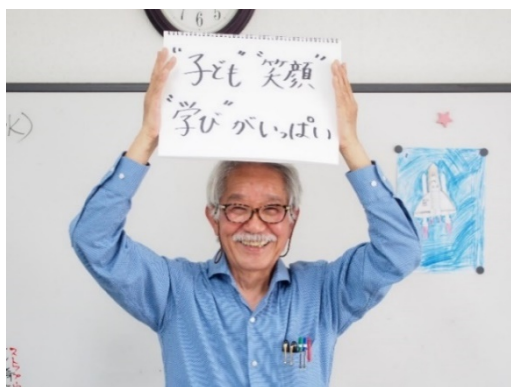 7 6 5
"子ども" "笑顔"
"学び" がいっぱい
K)